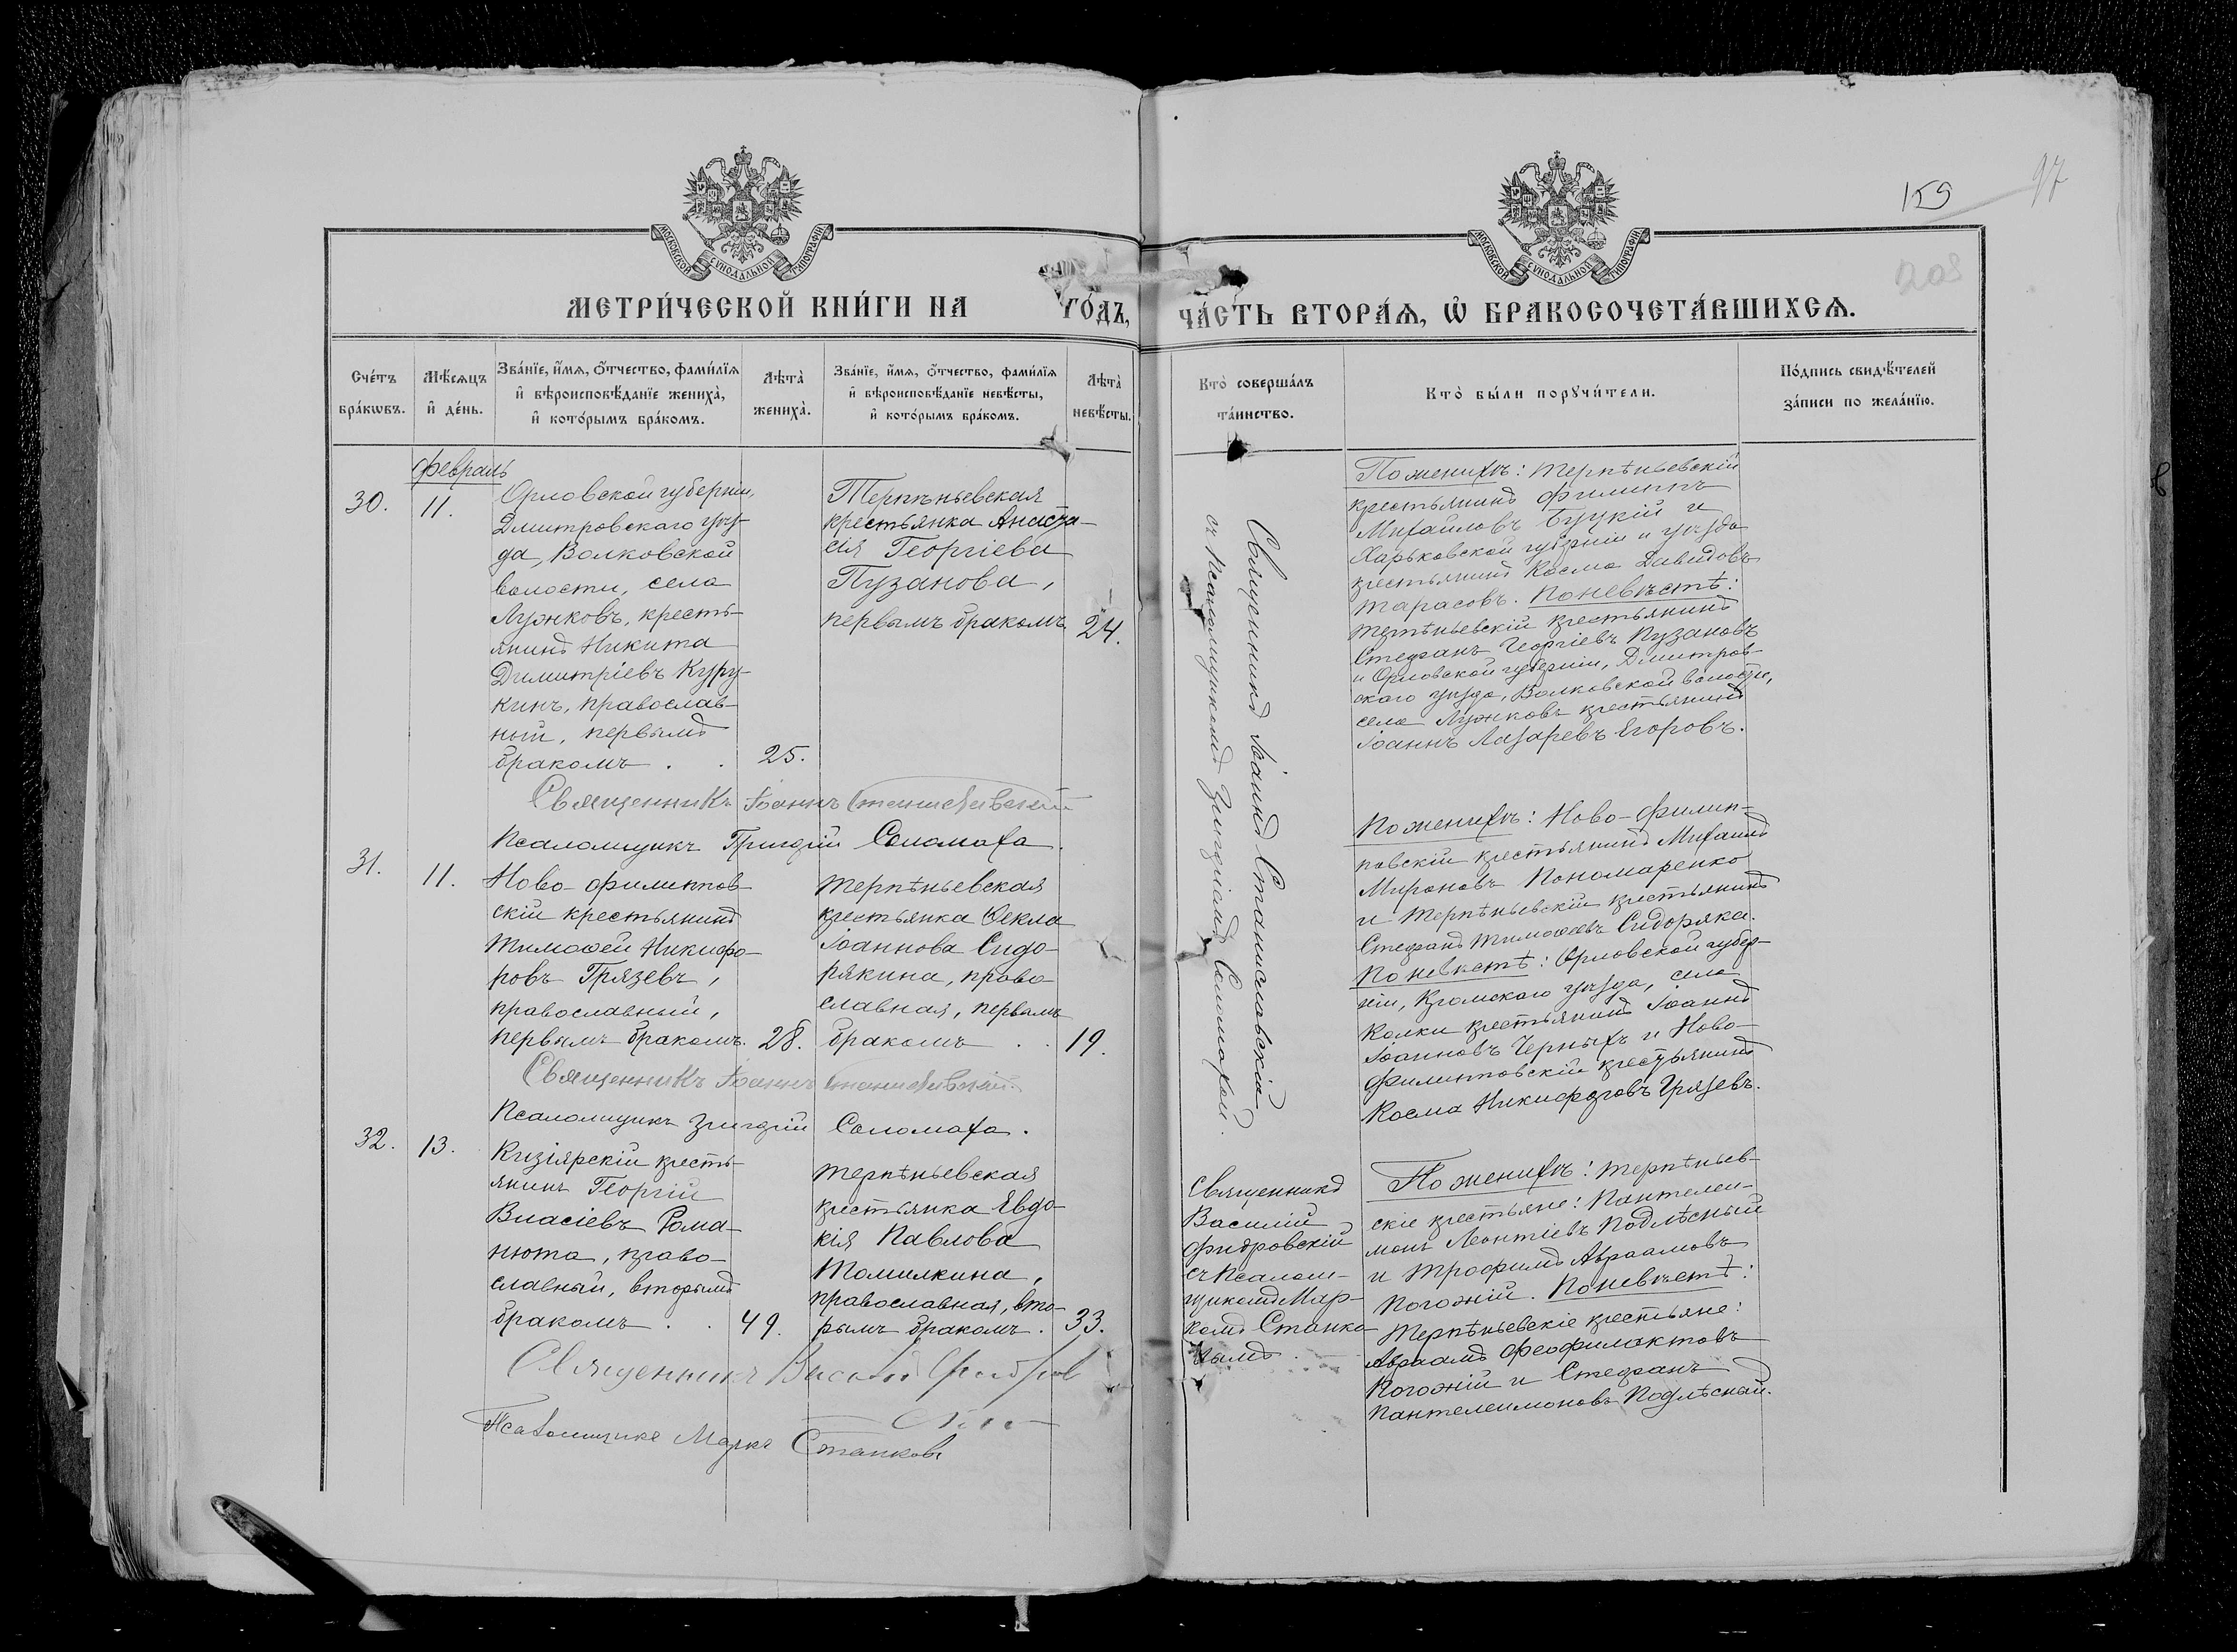 159
97
208
МОСКОВСКОЙ СѴНОДАЛЬНОЙ ТИПОГРАФІИ
МОСКОВСКОЙ СѴНОДАЛЬНОЙ ТИПОГРАФІИ
МЕТРИ́ЧЕСКОЙ КНИ́ГИ НА ГО́ДЪ,
ЧА́СТЬ ВТОРА́Я, Ѡ БРАКОСОЧЕТА́ВШИХСЯ.
Сче́тъ бра́кѡвъ.
Мѣ́сяцъ и҆ де́нь.
Зва́нїе, и҆́мя, ѻ҆́тчество, фами́лїя
и҆ вѣроисповѣ́данїе жениха̀,
и҆ кото́рымъ бра́комъ.
Лѣта̀ жениха̀.
Зва́нїе, и҆́мя, ѻ҆́тчество, фами́лїя
и҆ вѣроисповѣ́данїе невѣ́сты,
и҆ кото́рымъ бра́комъ.
Лѣта̀ невѣ́сты.
Кто̀ соверша́лъ
та́инство.
Кто̀ бы́ли порꙋчи́тели.
По́дпись свидѣ́телей
за́писи по жела́нїю.
Февраль
30.
11.
Орловской губерніи,
Дмитровскаго уѣз-
да, Волковской
волости, села
Лужковъ, кресть-
янинъ Никита
Димитріевъ Куру-
кинъ, православ-
ный, первымъ
бракомъ . .
25.
Терпѣньевская
крестьянка Анаста-
сія Георгіева
Пузанова,
первымъ бракомъ
24.
Священникъ Іоаннъ Станиславскій
съ Псаломщикомъ Григоріемъ Соломахой.
По женихѣ: Терпѣньевскій
крестьянинъ Филиппъ
Михайловъ Буцкій и
Харьковской губерніи и уѣзда
крестьянинъ Косма Давидовъ
Тарасовъ. По невѣстѣ:
Терпѣньевскій крестьянинъ
Стефанъ Георгіевъ Пузановъ
и Орловской губерніи, Дмитров-
скаго уѣзда, Волковской волости,
села Лужковъ крестьянинъ
Іоаннъ Лазаревъ Егоровъ.
Священникъ Іоаннъ Станиславскій
Псаломщикъ Григорій Соломаха.
31.
11.
Ново-филиппов-
скій крестьянинъ
Тимофей Никифо-
ровъ Грязевъ,
православный,
первымъ бракомъ.
28.
Терпѣньевская
крестьянка Ѳекла
Іоаннова Сидо-
рякина, право-
славная, первымъ
бракомъ . .
19.
По женихѣ: Ново-филип-
повскій крестьянинъ Михаилъ
Мироновъ Пономаренко
и Терпѣньевскій крестьянинъ
Стефанъ Тимофеевъ Сидоряка.
По невѣстѣ: Орловской губер-
ніи, Кромскаго уѣзда, села
Колки крестьянинъ Іоаннъ
Іоанновъ Черныхъ и Ново-
филиповскій крестьянинъ
Косма Никифоровъ Грязевъ.
Священникъ Іоаннъ Станиславскій.
Псаломщикъ Григорій Соломаха.
32.
13.
Кизіярскій кресть-
янинъ Георгій
Власіевъ Рома-
нюта, право-
славный, вторымъ
бракомъ . .
49.
Терпѣньевская
крестьянка Евдо-
кія Павлова
Томилкина,
православная, вто-
рымъ бракомъ.
33.
Священникъ
Василій
Фидровскій
съ Псалом-
щикомъ Мар-
комъ Станко-
вымъ.
По женихѣ: Терпѣньев-
скіе крестьяне: Пантелеи-
монъ Леонтіевъ Подлѣсный
и Трофимъ Авраамовъ
Погожій. По невѣстѣ:
Терпѣньевскіе крестьяне:
Авраамъ Феофилактовъ
Погожій и Стефанъ
Пантелеимоновъ Подлѣсный.
Священникъ Василій
Псаломщикъ Маркъ Станковъ